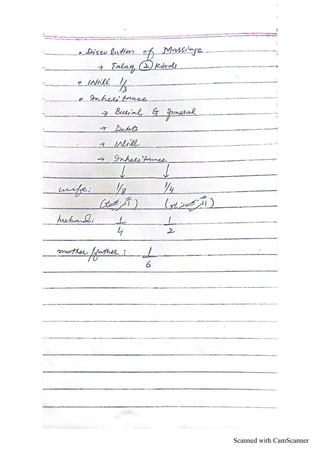 • Dissolution of Marriage
→ Talaq ② Kinds
• Will 1/3
• Inheritance
→ Burial & funeral
→ Debts
→ Will
→ Inheritance
↓ ↓
wife: 1/8 1/4
(اگر) (اگر)
husband: 1/4 1/2
mother/father: 1/6
Scanned with CamScanner